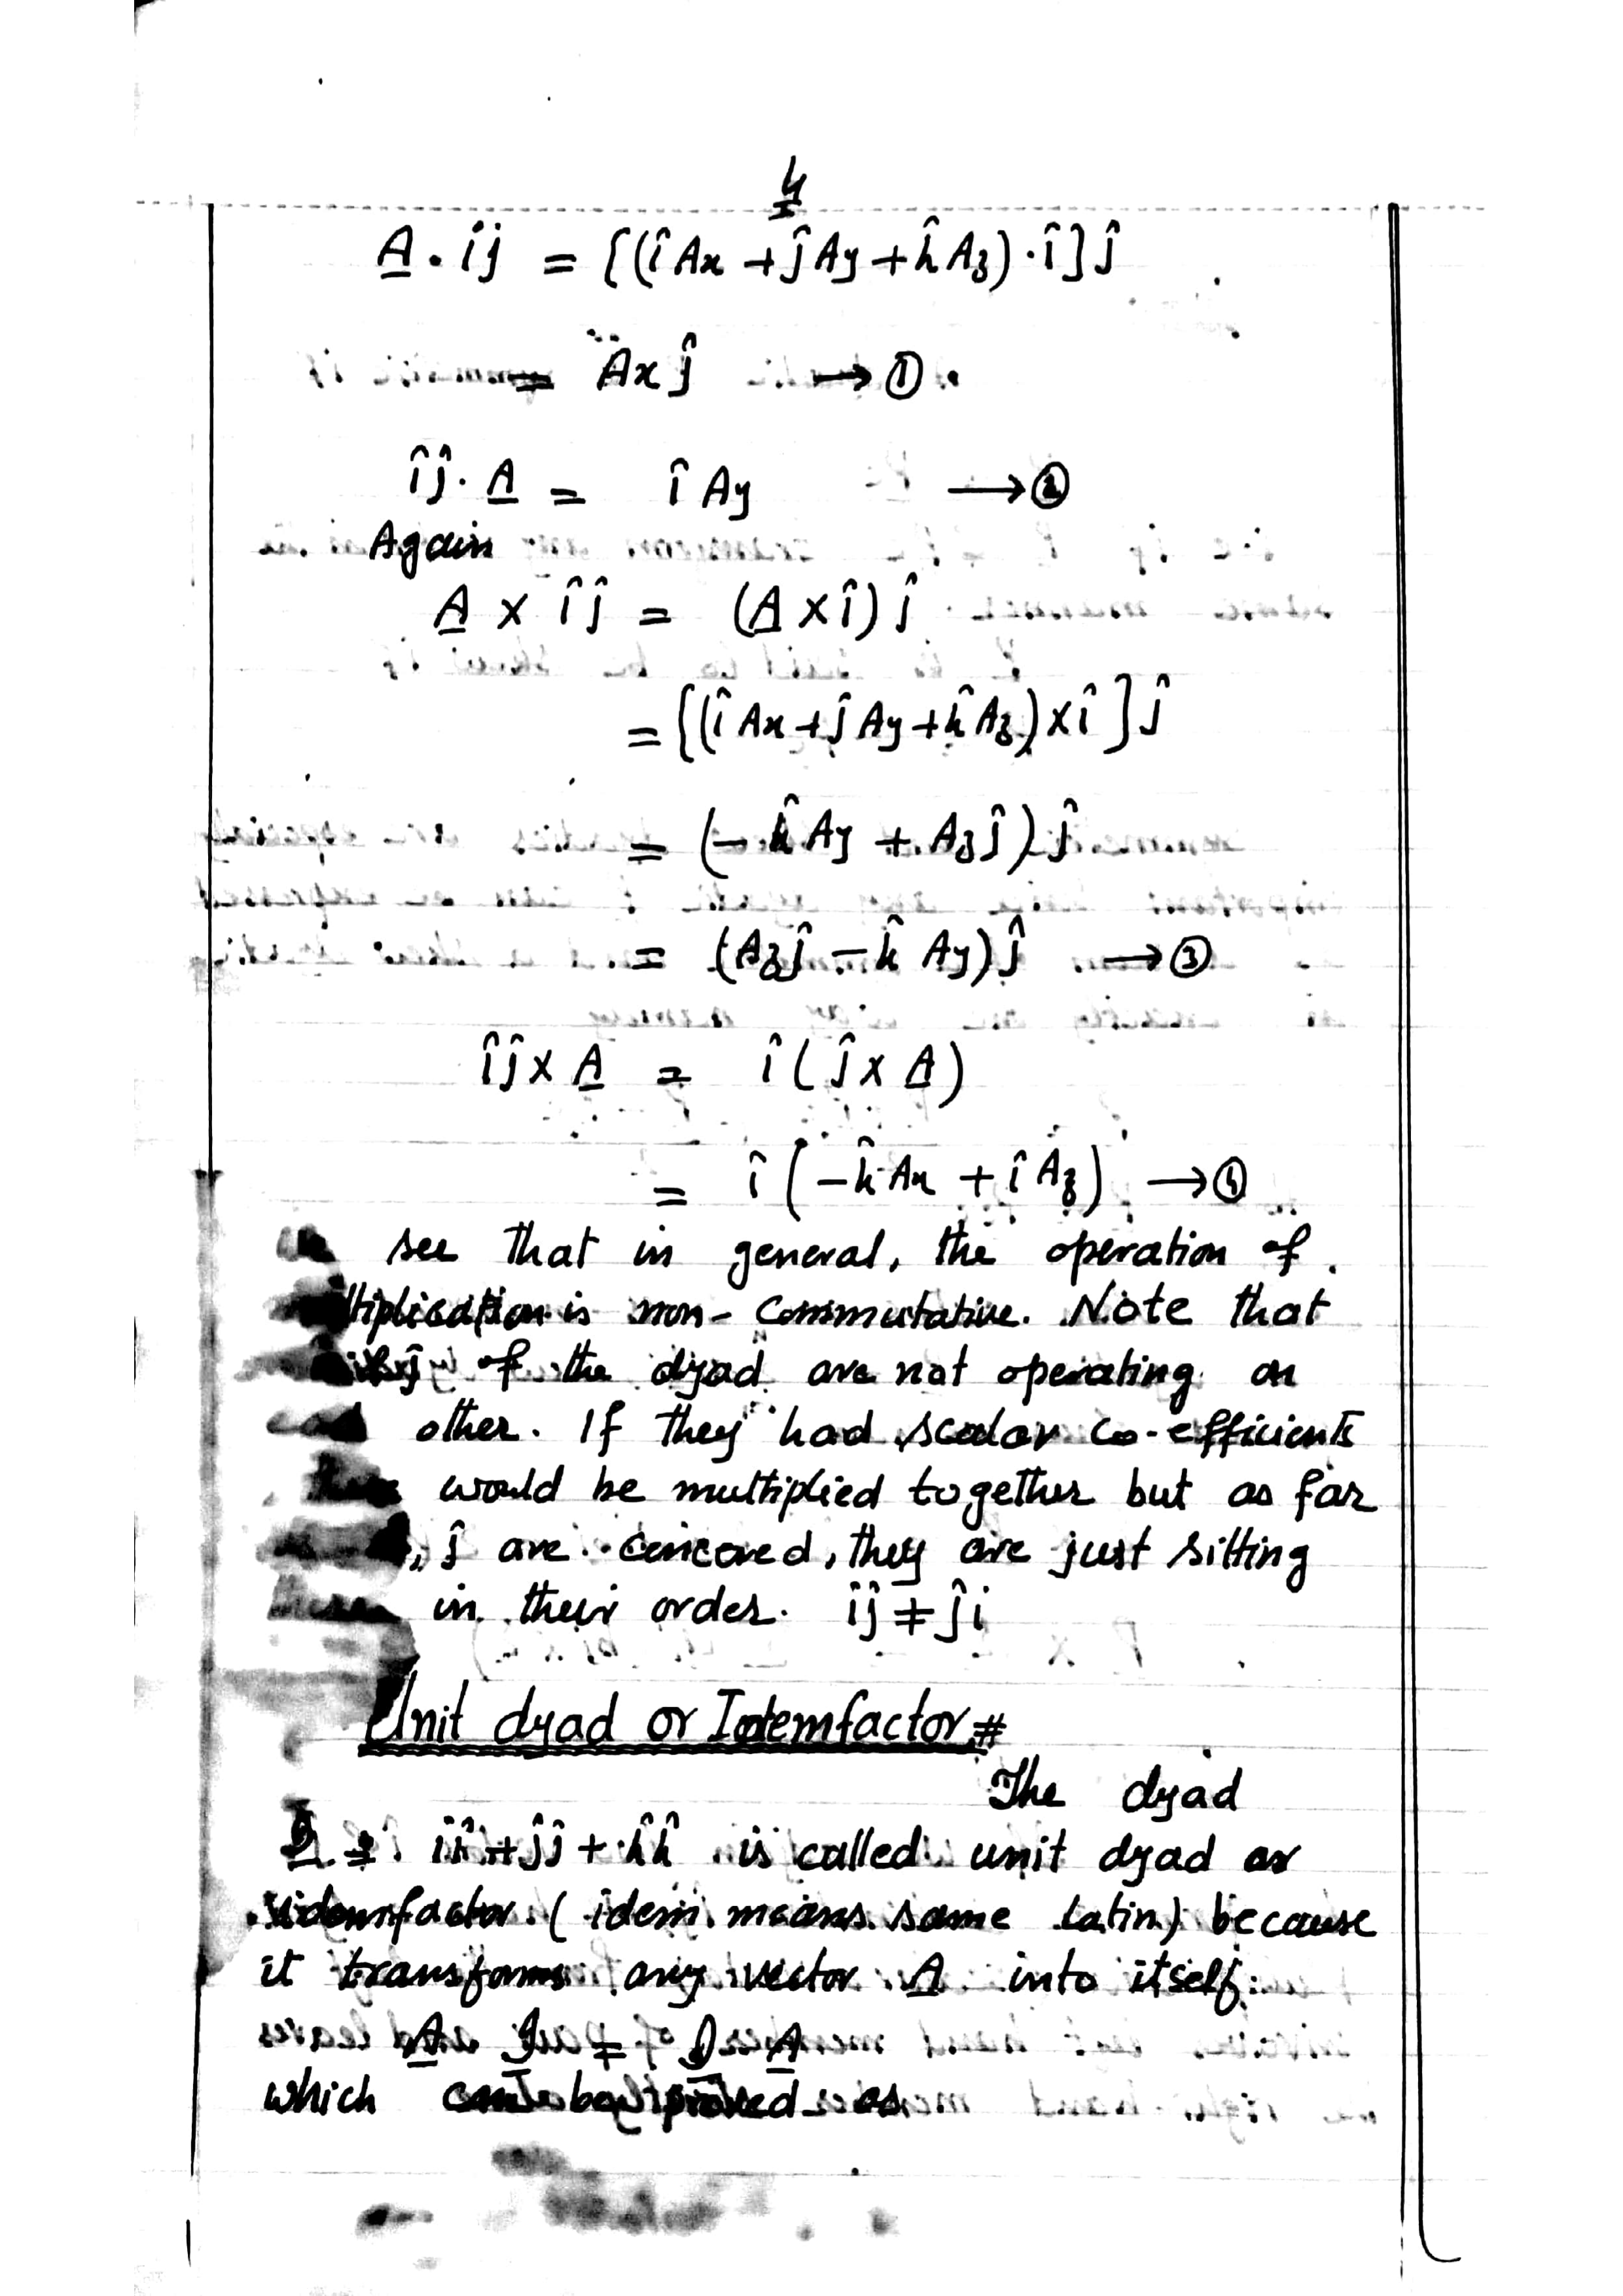 4
A · îĵ = [(î Ax + ĵ Ay + k̂ Az) · î] ĵ
= Ax ĵ → ①
îĵ · A = î Ay → ②
Again
A × îĵ = (A × î) ĵ
= [(î Ax + ĵ Ay + k̂ Az) × î] ĵ
= (- k̂ Ay + Az ĵ) ĵ
= (Az ĵ - k̂ Ay) ĵ → ③
îĵ × A = î (ĵ × A)
= î (- k̂ Ax + î Az) → ④
see that in general, the operation of
is non-Commutative. Note that
ĵ of the dyad are not operating on
other. If they had scalar co-efficients
would be multiplied together but as far
, ĵ are concered, they are just sitting
in their order. îĵ ≠ ĵi
Unit dyad or Idemfactor #
The dyad
I = îî + ĵĵ + k̂k̂ is called unit dyad or
idemfactor (idem means same latin) because
it transforms any vector A into itself.
A · I = I · A
which can be proved as